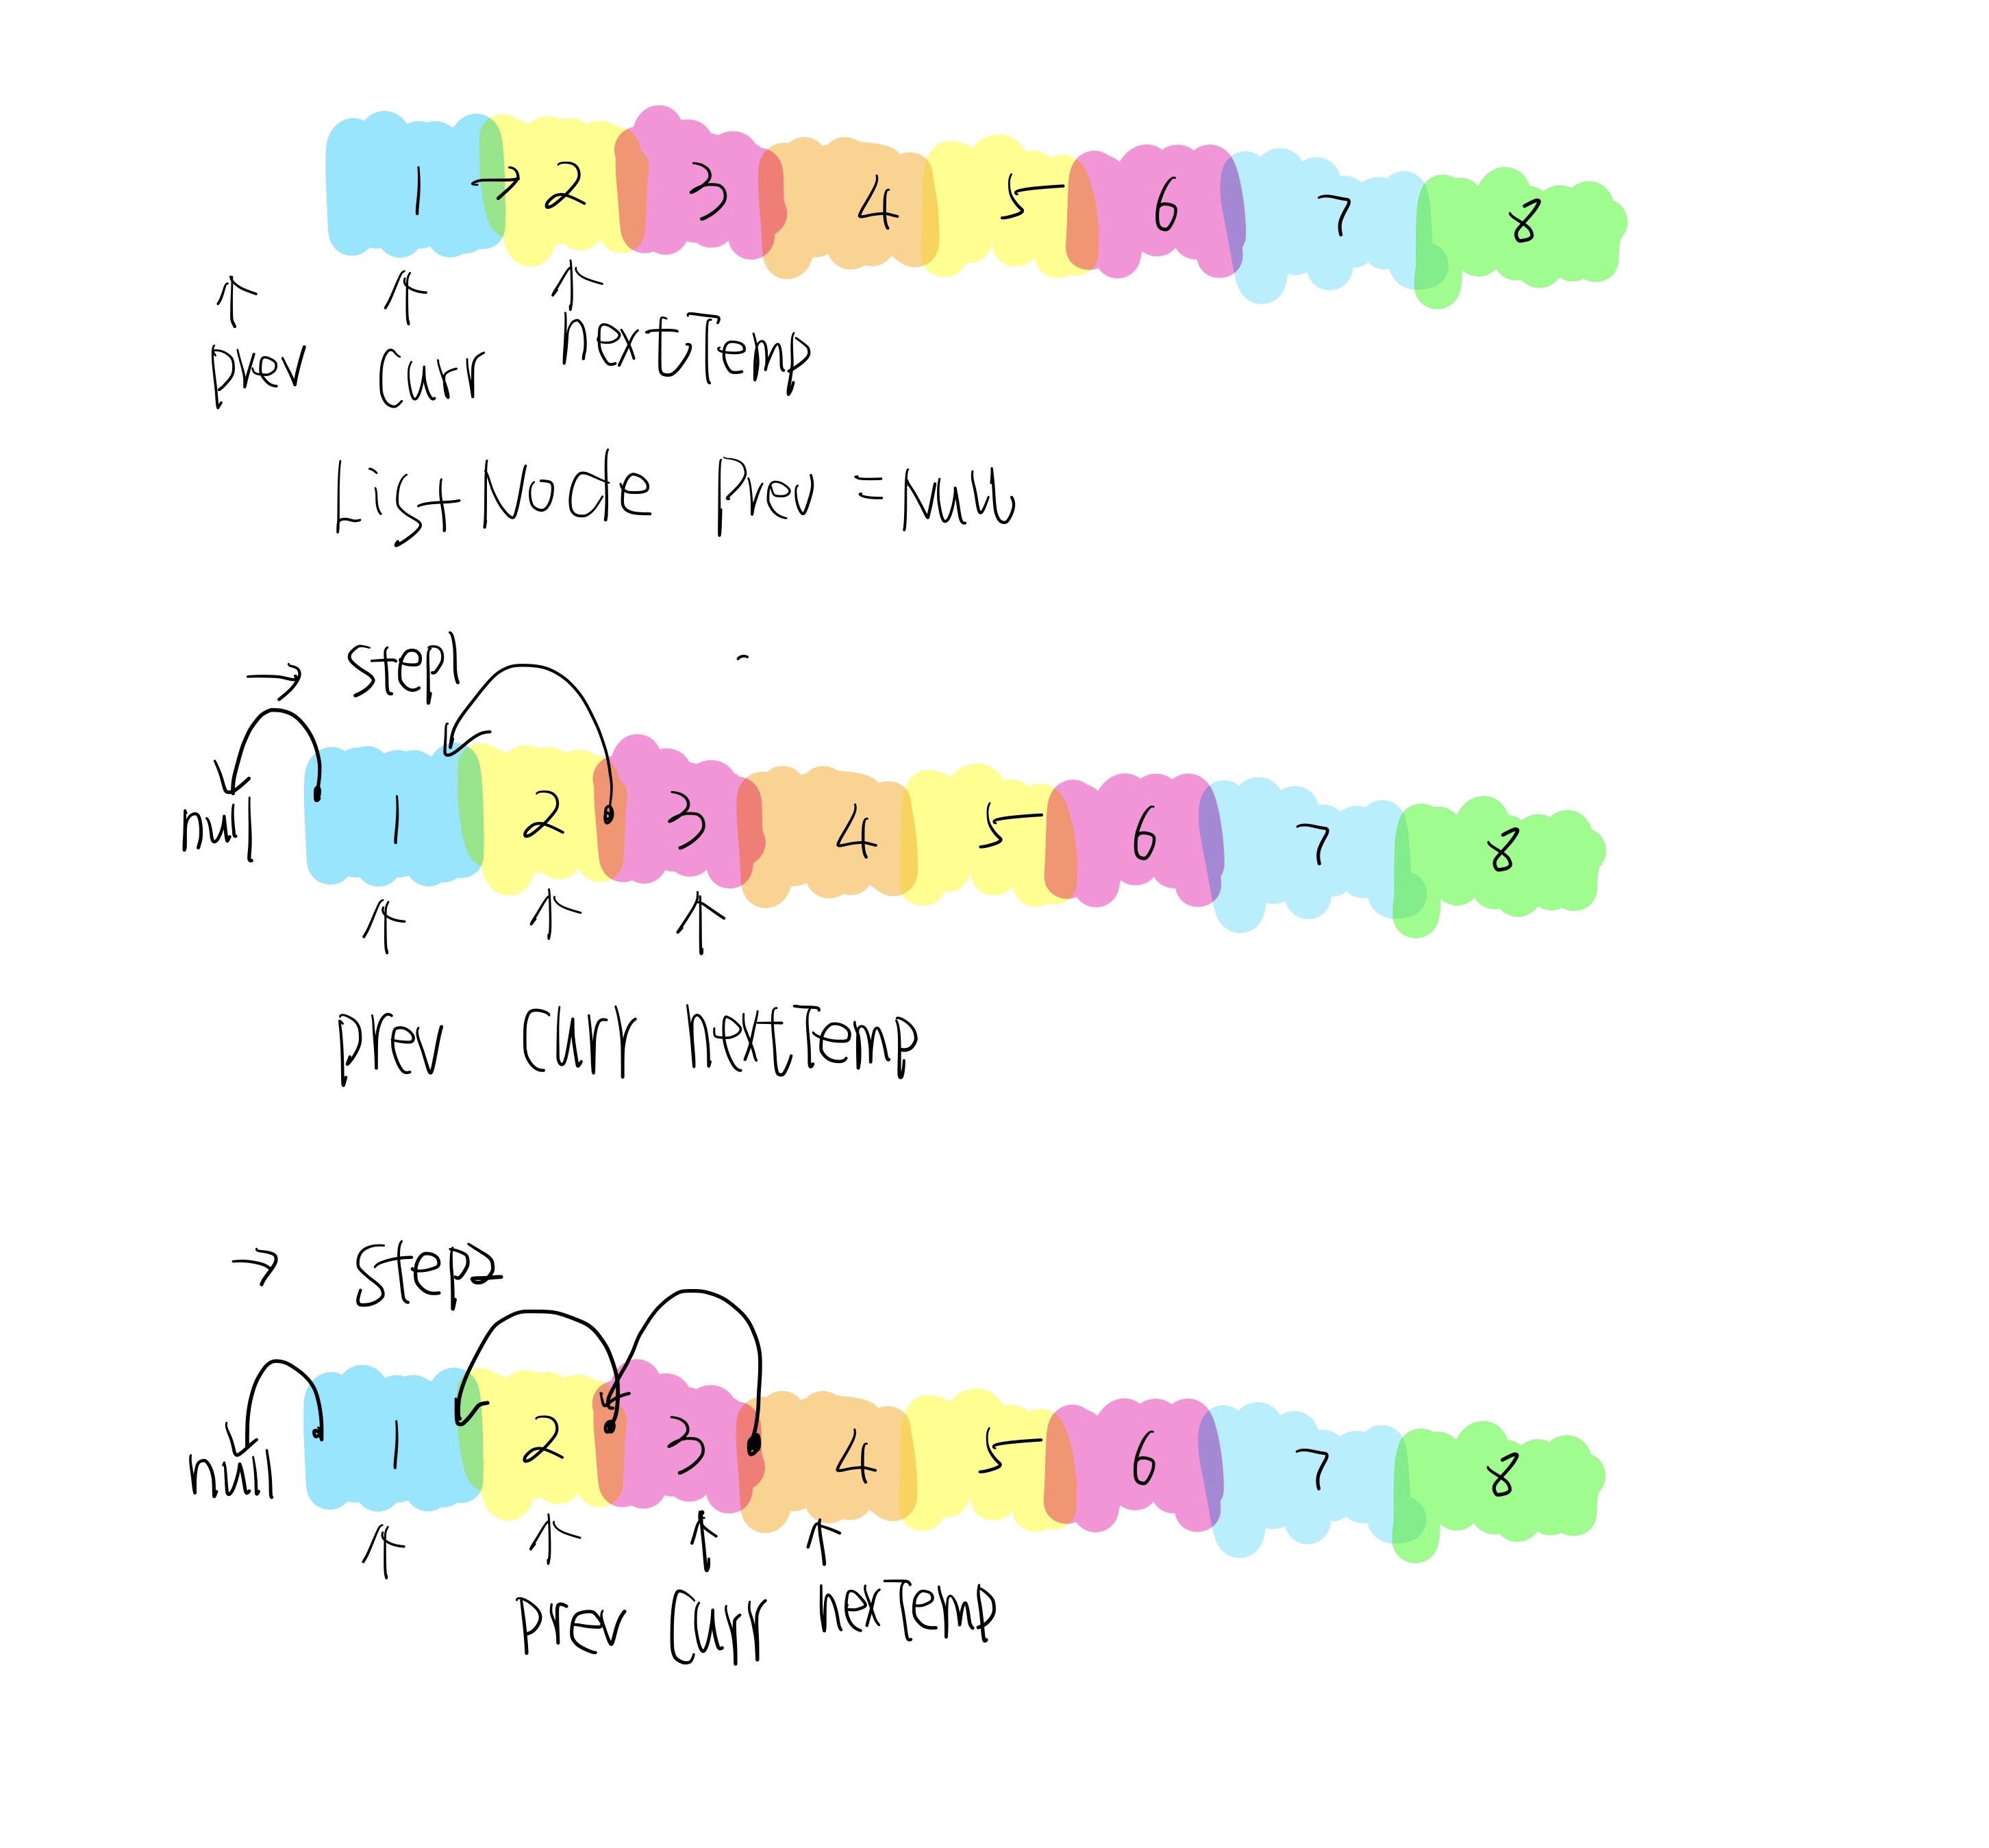 1 → 2 3 4 5 6 7 8
prev curr nextTemp
ListNode prev = null
→ step1
null 1 2 3 4 5 6 7 8
prev curr nextTemp
→ step2
null 1 2 3 4 5 6 7 8
prev curr nexTemp